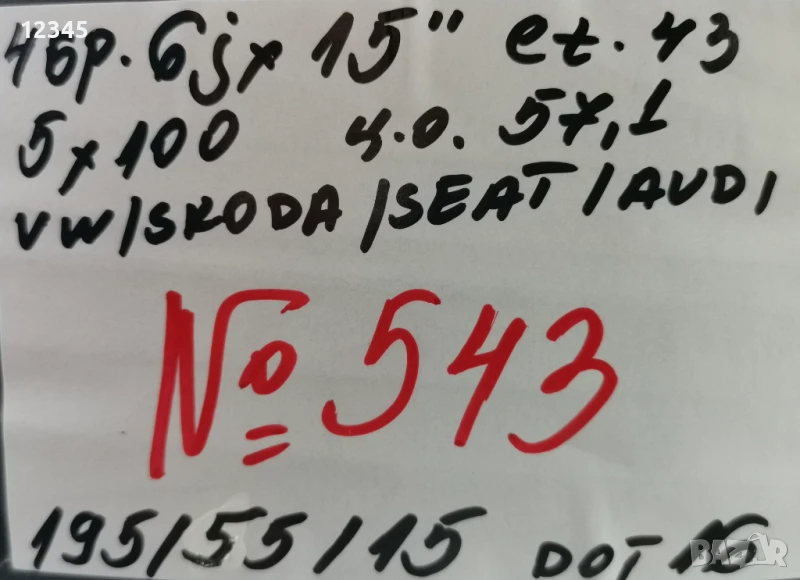 12345
4бр. 6jx 15" et. 43
5x100 ч.о. 57,1
VW/SKODA/SEAT/AUDI
№ 543
195/55/15 DOT
BAZAR